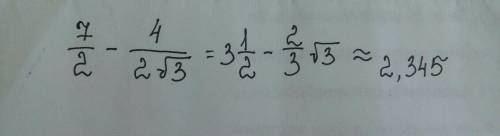 7/2 - 4/(2√3) = 3 1/2 - 2/3 √3 ≈ 2,345